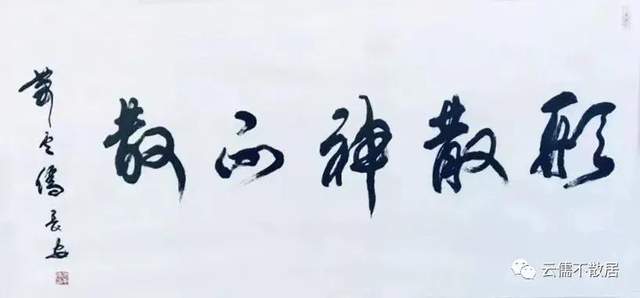 形散神不散
萧云儒長安
云儒不散居